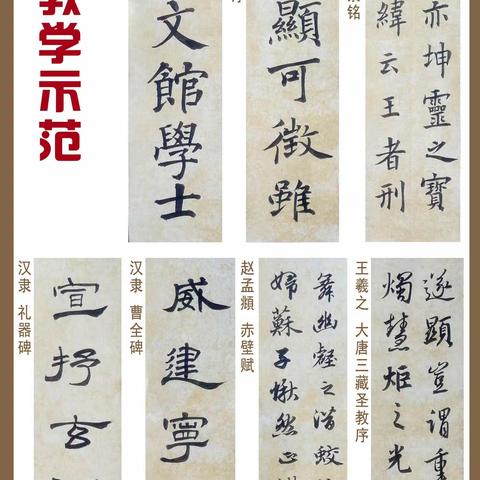 教学示范
文館學士
顯可徵雖
铭
亦坤靈之寶
緯云王者刑
汉隶 礼器碑
宣抒玄
汉隶 曹全碑
威建寧
赵孟頫 赤壁赋
舞幽壑之潛蛟
婦蘇子愀然正
王羲之 大唐三藏圣教序
遂顯豈謂重
燭慧炬之光